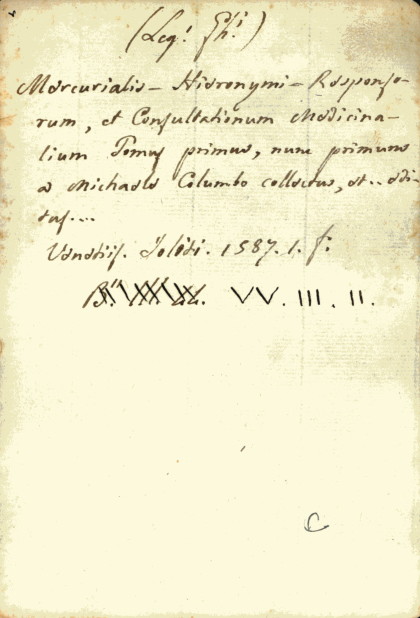 (Leg.
Mercurialis - Hieronymi - Responso-
rum, et Consultationum Medicina-
lium Tomus primus, nunc primum
a Michaele Columbo collectus, et .. edi-
tus....
Venetiis. Jolit̃i. 1587. 1. f.
VV. III. II.
C